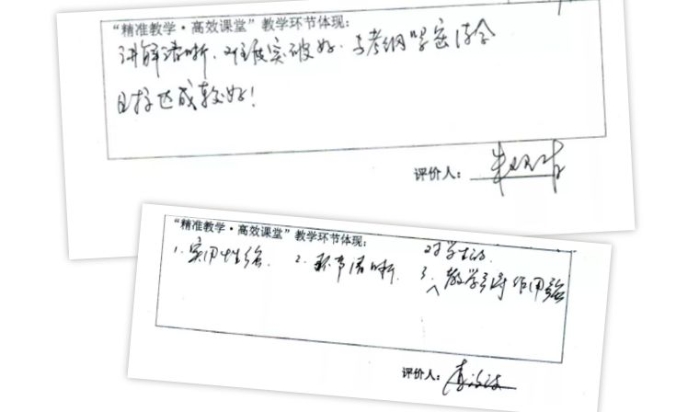 “精准教学·高效课堂”教学环节体现：
讲解清晰，难度突破好，与考纲紧密结合
目标达成较好！
评价人：
“精准教学·高效课堂”教学环节体现：
对学生的
1. 实用性强 2. 环节清晰 3. 教学 作用强
评价人：